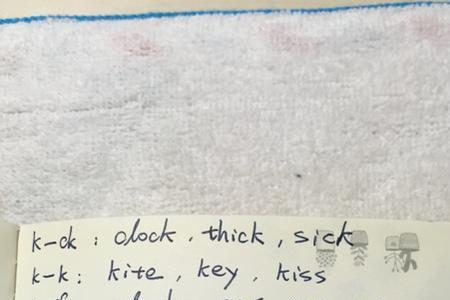 k-ck : clock , thick , sick
k-k : kite , key , kiss